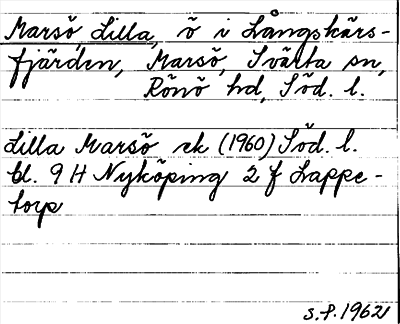 Marsö, Lilla, ö i Långskärs-
fjärden, Marsö, Svärta sn,
Rönö hd, Söd. l.
Lilla Marsö ek (1960) Söd. l.
bl. 9 H Nyköping 2 f Lappe-
torp
S.P. 1962